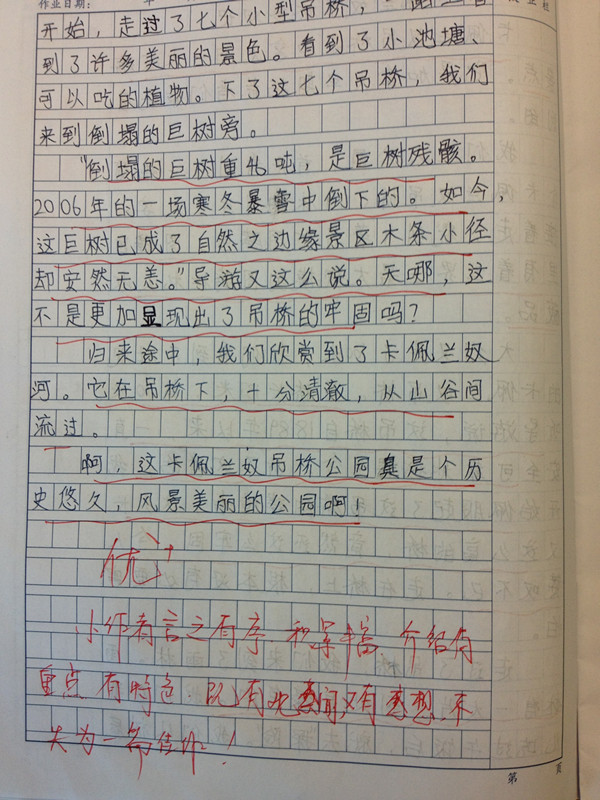 作业日期：
开始，走过了七个小型吊桥，
到了许多美丽的景色。看到了小池塘、
可以吃的植物。下了这七个吊桥，我们
来到倒塌的巨树旁。
“倒塌的巨树重46吨，是巨树残骸。
2006年的一场寒冬暴雪中倒下的。如今，
这巨树已成了自然之边缘景区木条小径
却安然无恙。”导游又这么说。天哪，这
不是更加显现出了吊桥的牢固吗？
归来途中，我们欣赏到了卡佩兰奴
河。它在吊桥下，十分清澈，从山谷间
流过。
啊，这卡佩兰奴吊桥公园真是个历
史悠久，风景美丽的公园啊！
优+
小作者言之有序，介绍有
重点 有特色 既有 又有感想，不
失为一篇佳作！
第 页